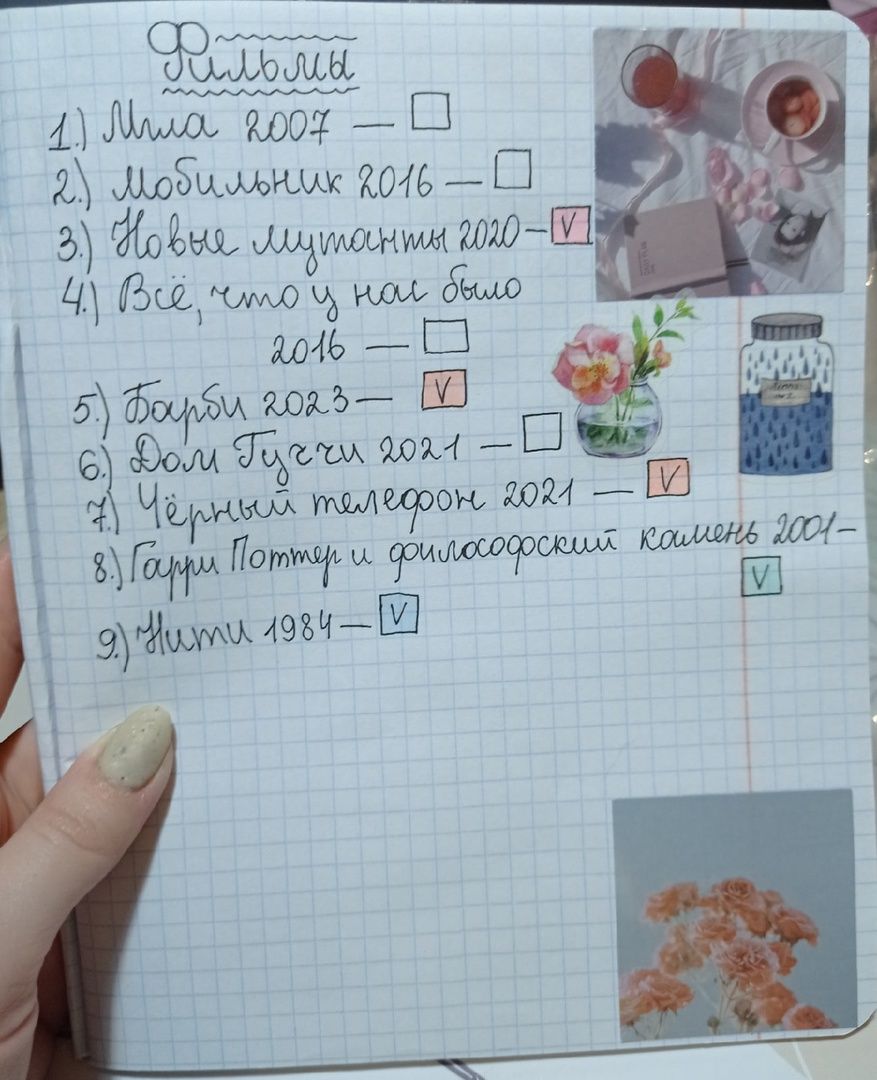 Фильмы
1.) Мгла 2007 —
2.) Мобильник 2016 —
3.) Новые мутанты 2020 — V
4.) Всё, что у нас было
2016 —
5.) Барби 2023 — V
6.) Дом Гуччи 2021 —
7.) Чёрный телефон 2021 — V
8.) Гарри Поттер и философский камень 2001 —
V
9.) Нити 1984 — V